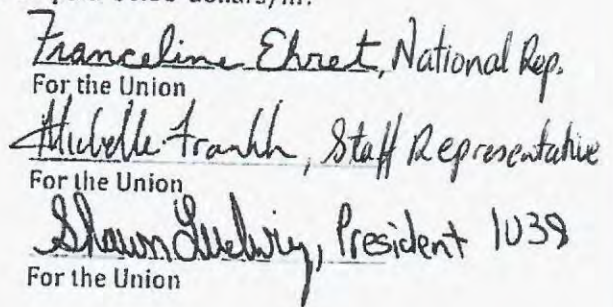 Franceline Ehret, National Rep.
For the Union
Michelle Frankh, Staff Representative
For the Union
Shawn Ludwig, President 1038
For the Union